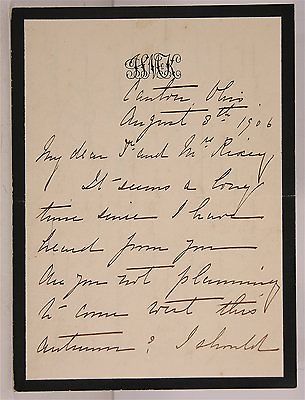 Canton, Ohio
August 8th 1906
My dear Dr and Mrs Rixey
It seems a long
time since I have
heard from you
Are you not planning
to come west this
autumn? I should